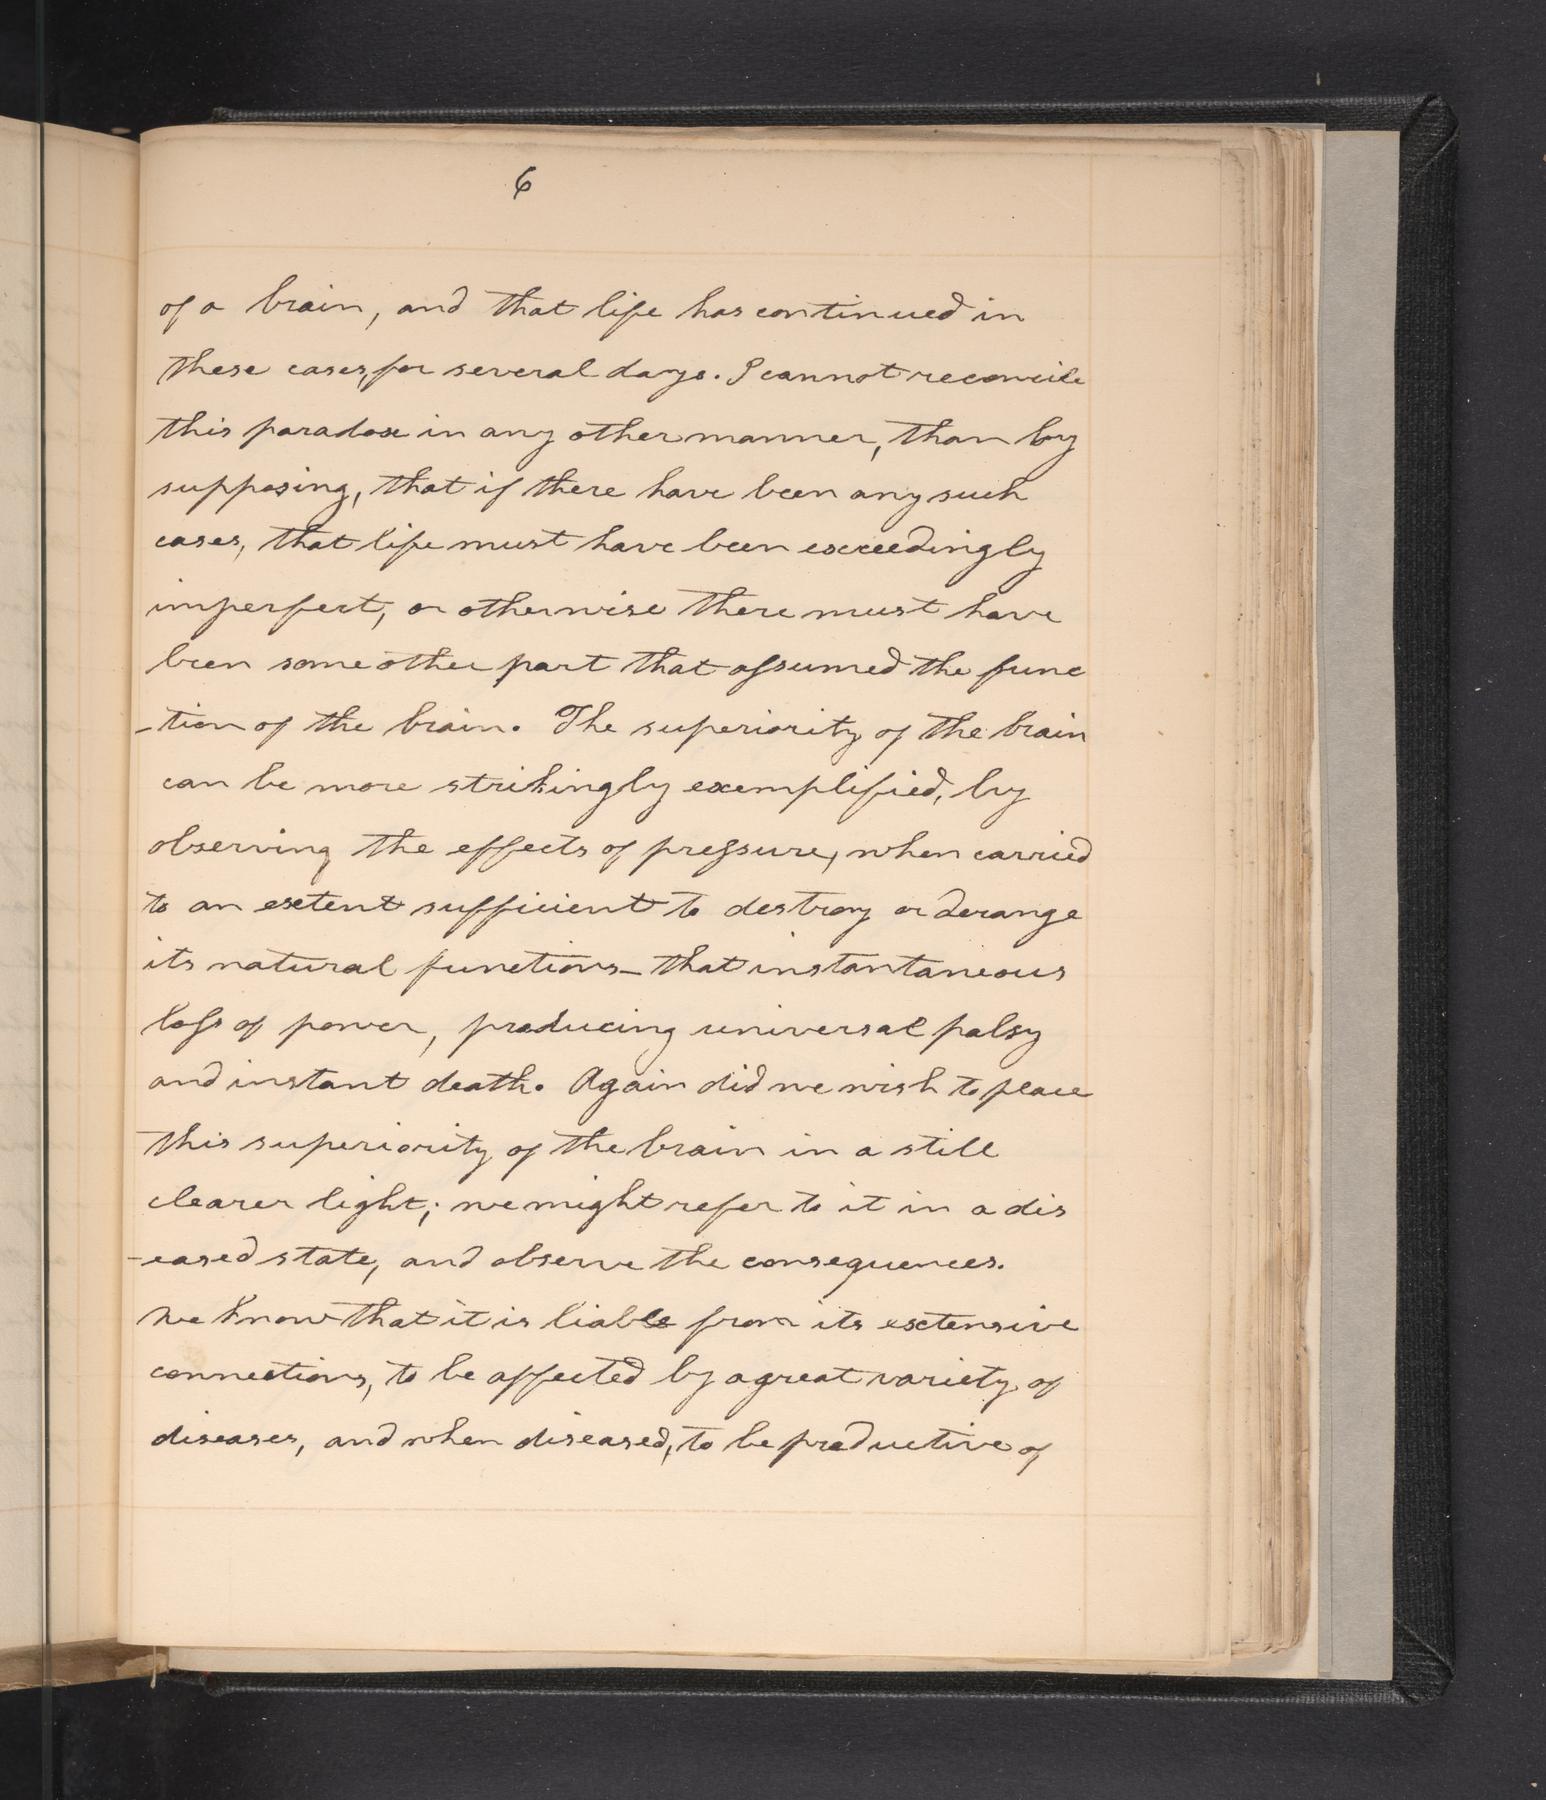 6
of a brain, and that life has continued in
these cases, for several days. I cannot reconcile
this paradox in any other manner, than by
supposing, that if there have been any such
cases, that life must have been exceedingly
imperfect, or otherwise there must have
been some other part that assumed the func
-tion of the brain. The superiority of the brain
can be more strikingly exemplified, by
observing the effects of pressure, when carried
to an extent sufficient to destroy or derange
its natural functions_ that instantaneous
loss of power, producing universal palsy
and instant death. Again did we wish to place
this superiority of the brain in a still
clearer light; we might refer to it in a dis
-eased state, and observe the consequences.
We know that it is liable from its extensive
connections, to be affected by a great variety of
diseases, and when diseased, to be productive of